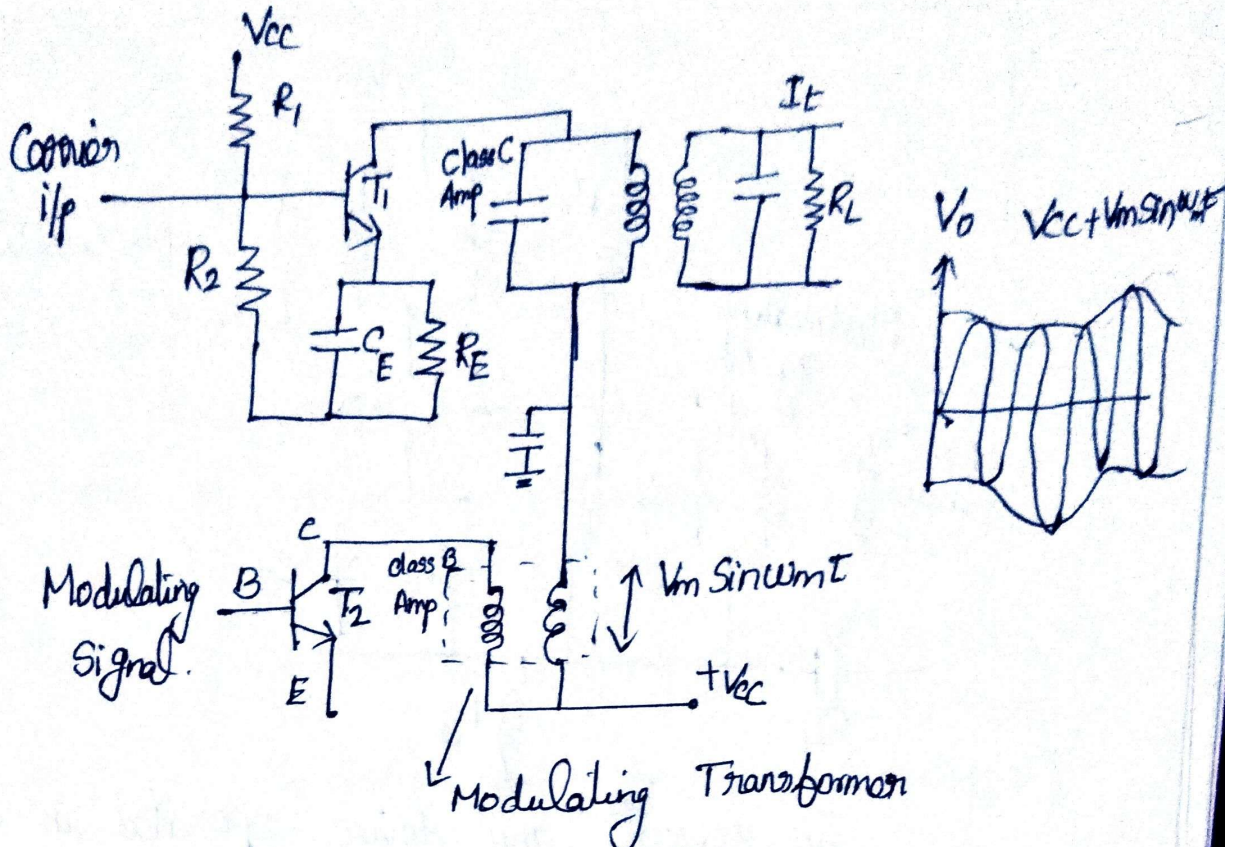 Vcc
R1
Carrier
i/p
T1
Class C
Amp
It
RL
R2
CE
RE
Vo Vcc+Vm Sinωmt
Modulating
Signal.
B
C
T2
E
class B
Amp
Vm Sinωmt
+Vcc
Modulating Transformer